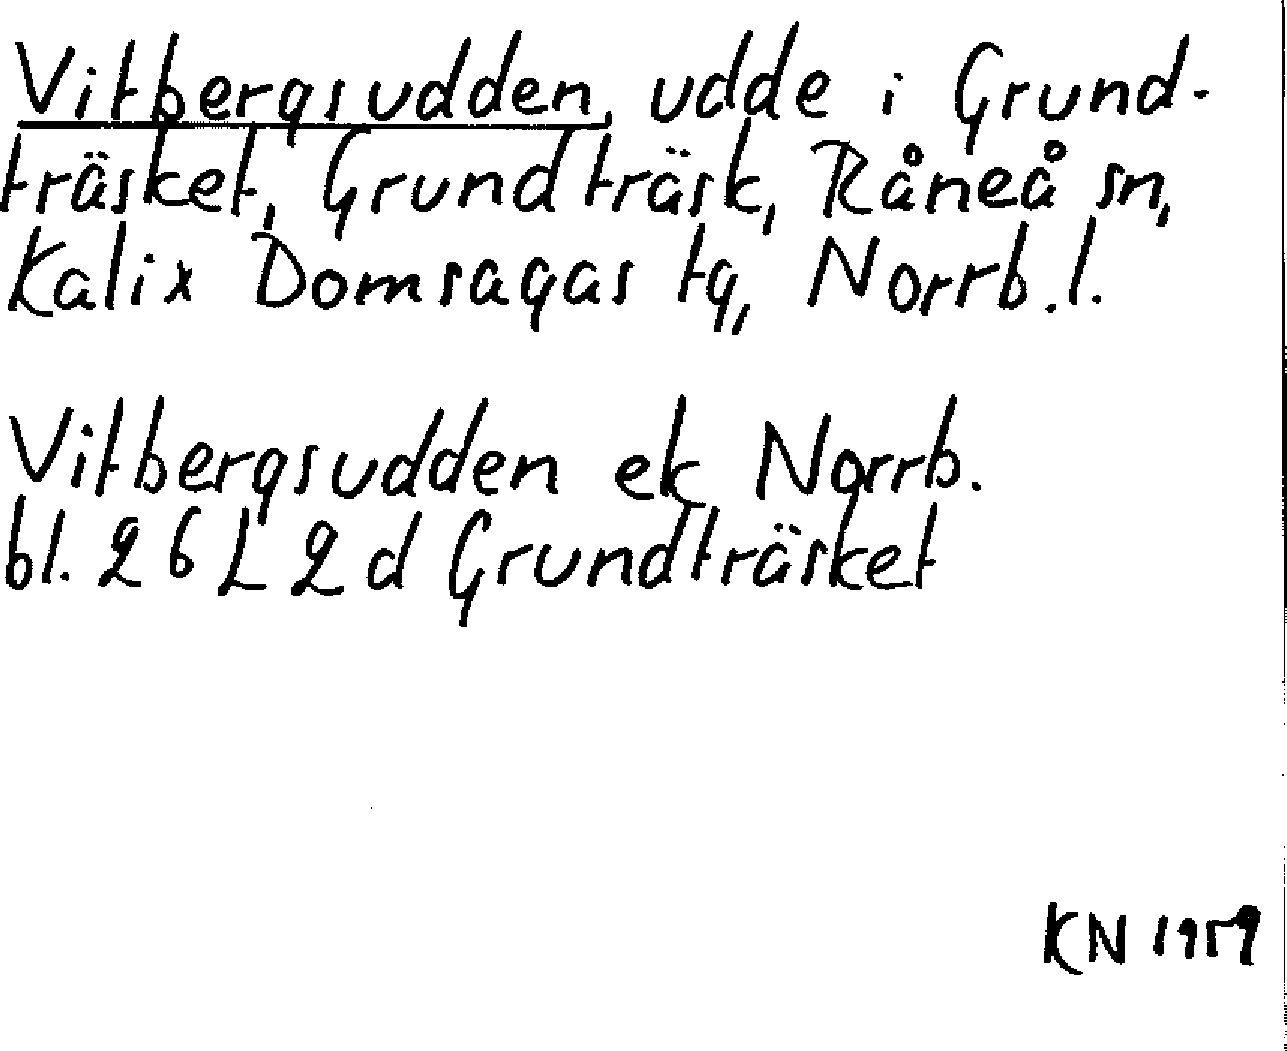 Vitbergsudden, udde i Grund-
träsket, Grundträsk, Råneå sn,
Kalix Domsagas tg, Norrb. l.
Vitbergsudden ek Norrb.
bl. 26 L 2 d Grundträsket
KN 1959